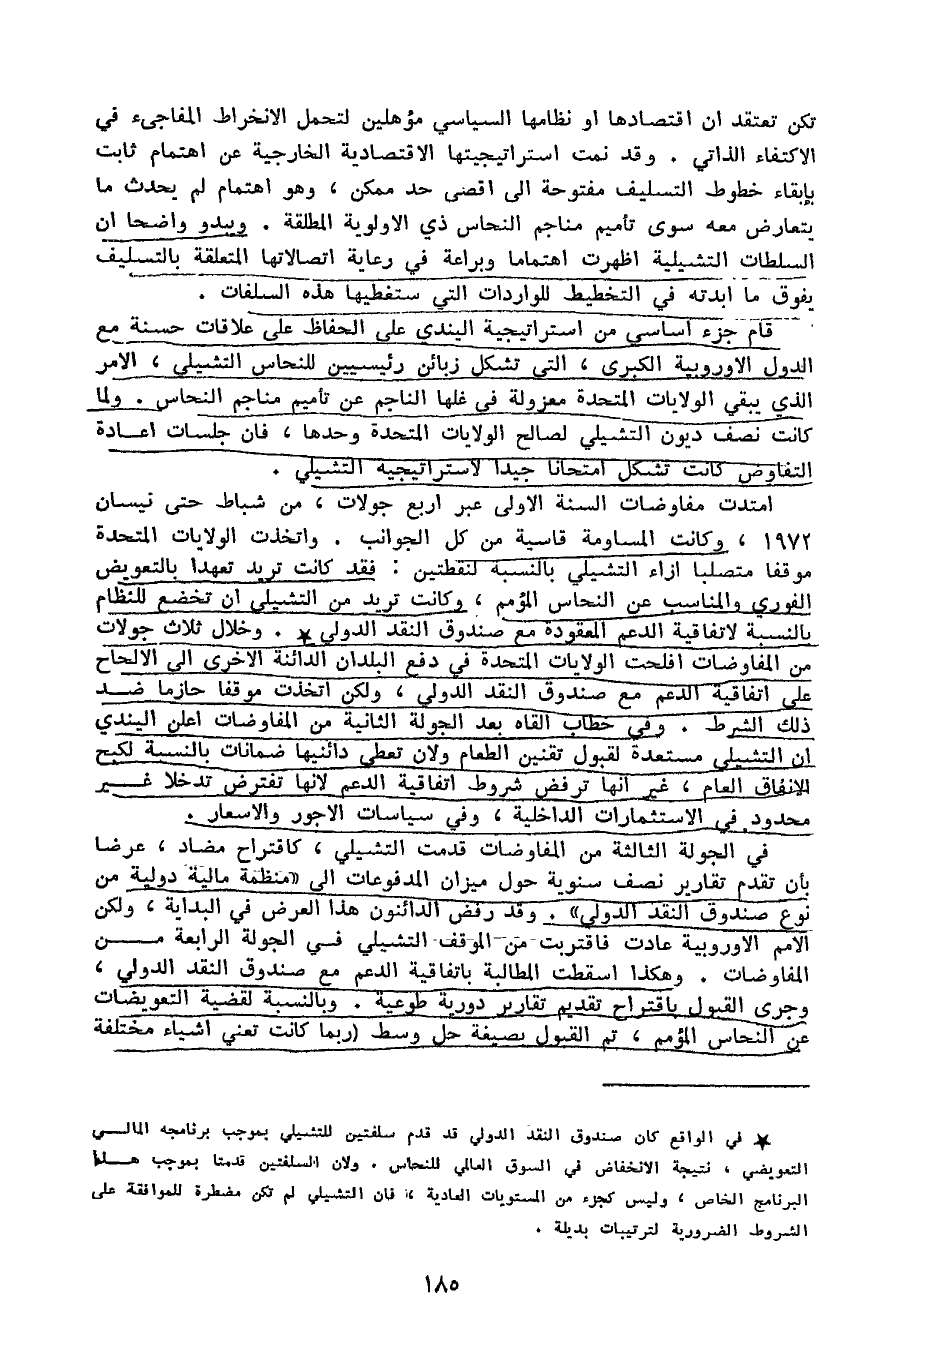 تكن تعتقد ان اقتصادها او نظامها السياسي مؤهلين لتحمل الانخراط المفاجىء في
الاكتفاء الذاتي . وقد نمت استراتيجيتها الاقتصادية الخارجية عن اهتمام ثابت
بإبقاء خطوط التسليف مفتوحة الى اقصى حد ممكن ، وهو اهتمام لم يحدث ما
يتعارض معه سوى تأميم مناجم النحاس ذي الاولوية المطلقة . ويبدو واضحا ان
السلطات التشيلية اظهرت اهتماما وبراعة في رعاية اتصالاتها المتعلقة بالتسليف
يفوق ما ابدته في التخطيط للواردات التي ستغطيها هذه السلفات .
قام جزء اساسي من استراتيجية اليندي على الحفاظ على علاقات حسنة مع
الدول الاوروبية الكبرى ، التي تشكل زبائن رئيسيين للنحاس التشيلي ، الامر
الذي يبقي الولايات المتحدة معزولة في غلها الناجم عن تأميم مناجم النحاس . ولما
كانت نصف ديون التشيلي لصالح الولايات المتحدة وحدها ، فان جلسات اعادة
التفاوض كانت تشكل امتحانا جيدا لاستراتيجية التشيلي .
امتدت مفاوضات السنة الاولى عبر اربع جولات ، من شباط حتى نيسان
١٩٧٢ ، وكانت المساومة قاسية من كل الجوانب . واتخذت الولايات المتحدة
موقفا متصلبا ازاء التشيلي بالنسبة لنقطتين : فقد كانت تريد تعهدا بالتعويض
الفوري والمناسب عن النحاس المؤمم ، وكانت تريد من التشيلي ان تخضع للنظام
بالنسبة لاتفاقية الدعم المعقودة مع صندوق النقد الدولي ★ . وخلال ثلاث جولات
من المفاوضات افلحت الولايات المتحدة في دفع البلدان الدائنة الاخرى الى الالحاح
على اتفاقية الدعم مع صندوق النقد الدولي ، ولكن اتخذت موقفا حازما ضد
ذلك الشرط . وفي خطاب القاه بعد الجولة الثانية من المفاوضات اعلن اليندي
ان التشيلي مستعدة لقبول تقنين الطعام ولان تعطي دائنيها ضمانات بالنسبة لكبح
الانفاق العام ، غير انها ترفض شروط اتفاقية الدعم لانها تفترض تدخلا غير
محدود في الاستثمارات الداخلية ، وفي سياسات الاجور والاسعار .
في الجولة الثالثة من المفاوضات قدمت التشيلي ، كاقتراح مضاد ، عرضا
بأن تقدم تقارير نصف سنوية حول ميزان المدفوعات الى «منظمة مالية دولية من
نوع صندوق النقد الدولي» . وقد رفض الدائنون هذا العرض في البداية ، ولكن
الامم الاوروبية عادت فاقتربت من الموقف التشيلي في الجولة الرابعة من
المفاوضات . وهكذا اسقطت المطالبة باتفاقية الدعم مع صندوق النقد الدولي ،
وجرى القبول باقتراح تقديم تقارير دورية طوعية . وبالنسبة لقضية التعويضات
عن النحاس المؤمم ، تم القبول بصيغة حل وسط (ربما كانت تعني اشياء مختلفة
★ في الواقع كان صندوق النقد الدولي قد قدم سلفتين للتشيلي بموجب برنامجه المالي
التعويضي ، نتيجة الانخفاض في السوق العالي للنحاس . ولان السلفتين قدمتا بموجب هذا
البرنامج الخاص ، وليس كجزء من المستويات العادية ، فان التشيلي لم تكن مضطرة للموافقة على
الشروط الضرورية لترتيبات بديلة .
١٨٥